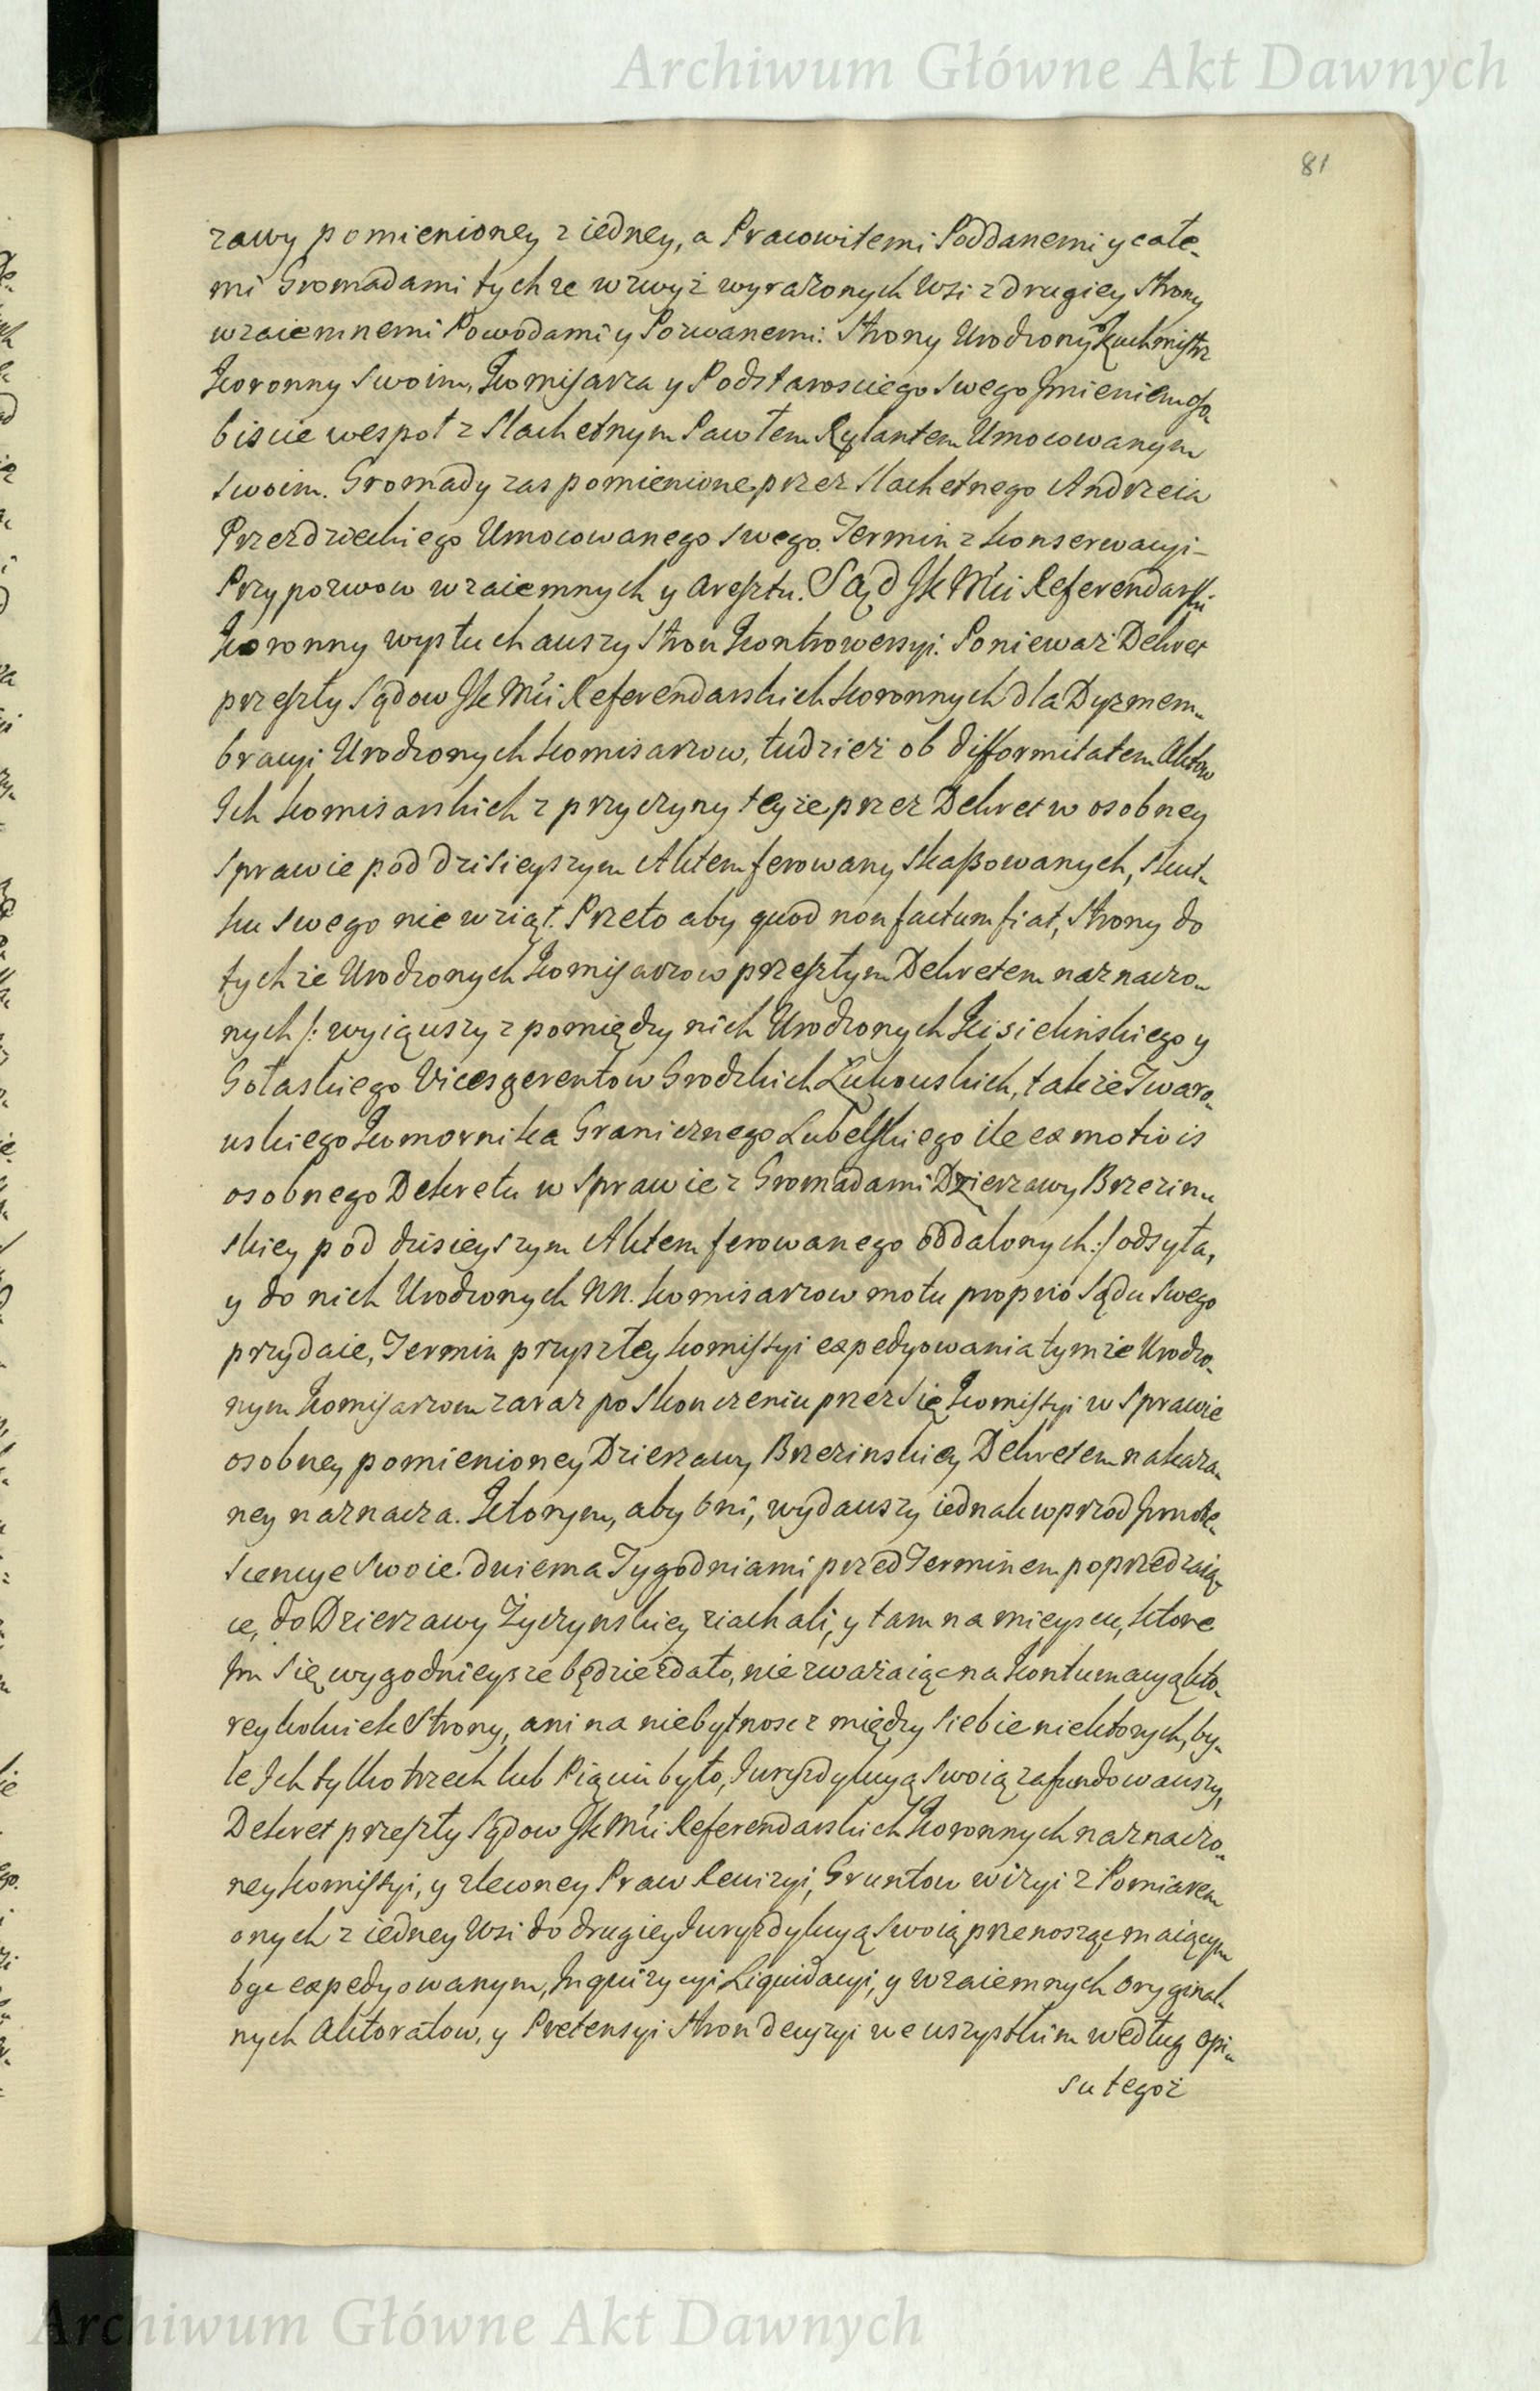 Archiwum Główne Akt Dawnych
81
zawy pomienioney z iedney, a Pracowitemi Poddanemi y całe-
mi Gromadami tychże wzwyż wyrażonych Wsi z drugiey Strony
wzaiemnemi Powodami y Pozwanemi: Strony Urodzony Kuchmistrz
Koronny Swoim, Komisarza y Podstarosciego Swego Jmieniem oso-
biscie wespoł z Slachetnym Pawłem Rylantem Umocowanym
Swoim. Gromady zas pomienione przez Slachetnego Andrzeia
Przezdzieckiego Umocowanego Swego. Termin z konserwacyi-
Przypozwow wzaiemnych y Aresztu. Sąd JK Mci Referendarski
Koronny wysłuchauszy Stron Kontrowersyi. Ponieważ Dekret
przeszły Sądow JK Mci Referendarskich Koronnych dla Dyzmem-
bracyi Urodzonych Komisarzow, tudzież ob difformitatem Aktow
Ich Komisarskich z przyczyny teyże przez Dekret w osobney
Sprawie pod dzisieyszym Aktem ferowany skassowanych, skut-
ku Swego nie wziął. Przeto aby quod non factum fiat, Strony do
tychże Urodzonych Komisarzow przeszłym Dekretem naznaczo-
nych /: wyiąuszy z pomiędzy nich Urodzonych Kisielińskiego y
Gołaskiego Vicesgerentow Grodzkich Łukowskich, także Twaro-
uskiego Komornika Granicznego Lubelskiego ile ex motivis
osobnego Dekretu w Sprawie z Gromadami Dzierzawy Brzezin-
skiey pod dzisieyszym Aktem ferowanego oddalonych :/ odsyła,
y do nich Urodzonych NN. Komisarzow motu proprio Sądu Swego
przydaie, Termin przyszłey Komissyi expedyowania tymże Urodzo-
nym Komisarzom zaraz po skonczeniu przez Się Komissyi w Sprawie
osobney pomienioney Dzierzawy Brzezinskiey Dekretem nakaza-
ney naznacza. Ktorym, aby oni, wydauszy iednak wprzod Jnnote-
scencye Swoie dwiema Tygodniami przed Terminem poprzedzaią-
ce, do Dzierzawy Życzynskiey ziachali, y tam na mieyscu, ktore
Jm Się wygodnieysze będzie zdało, nie zważaiąc na Kontumacyą kto-
reykolwiek Strony, ani na niebytnosc z między Siebie niektorych, by-
le Ich tylko trzech lub Piąciu było, Juryzdykcyą Swoią zafundowauszy,
Dekret przeszły Sądow JK Mci Referendarskich Koronnych naznaczo-
ney Komissyi, y zleconey Praw Rewizyi, Gruntow wizyi z Pomiarem
onych z iedney Wsi do drugiey Juryzdykcyą Swoią przenosząc maiącym
byc expedyowanym, Jnquizycyi Liquidacyi, y wzaiemnych oryginal-
nych Aktoratow, y Pretensyi Stron decyzyi we wszystkim według opi-
su tegoż
Archiwum Główne Akt Dawnych